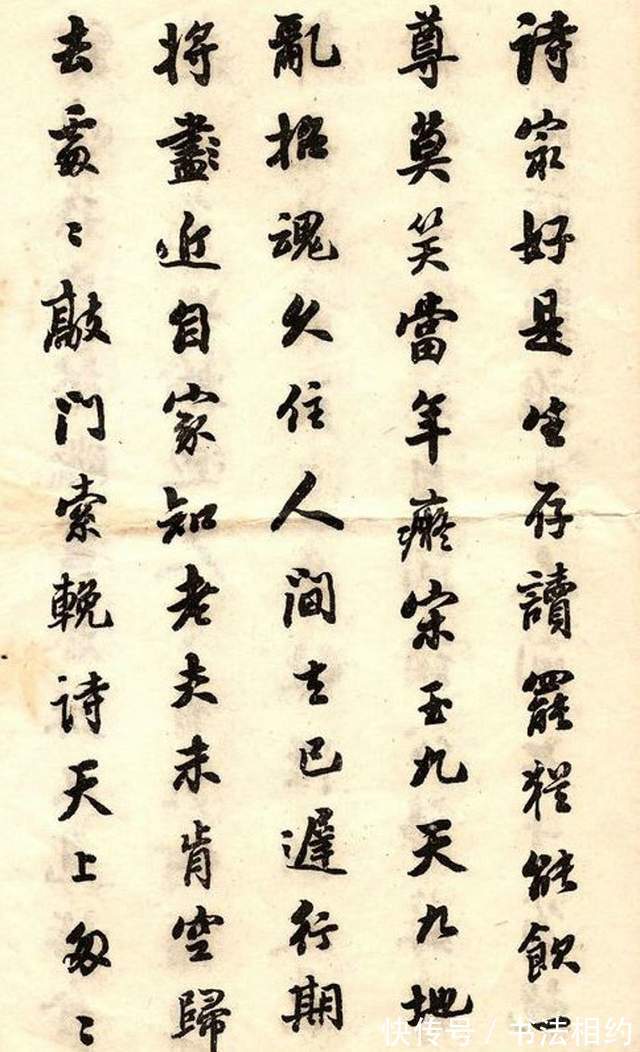 詩最好是生存讀罷猶能飲一
尊莫笑當年癡宋玉九天九地
亂招魂久住人間去已遲行期
將盡近自家知老夫未肯空歸
去處〻敲門索輓詩天上匆〻
快传号 / 书法相约